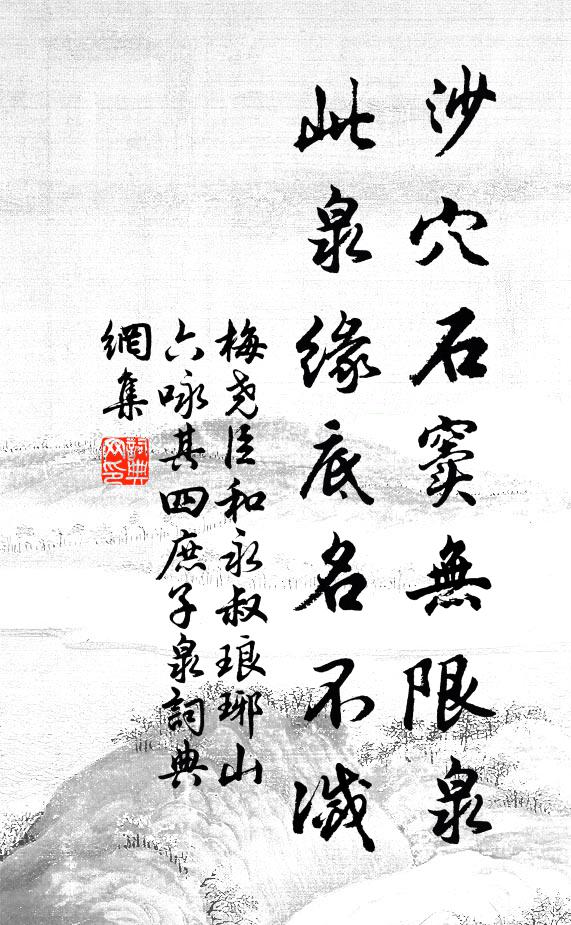 沙穴石竇無限泉
此泉緣底名不滅
梅堯臣和永叔琅琊山
六咏其四庶子泉詞典
網集
詞典
网印